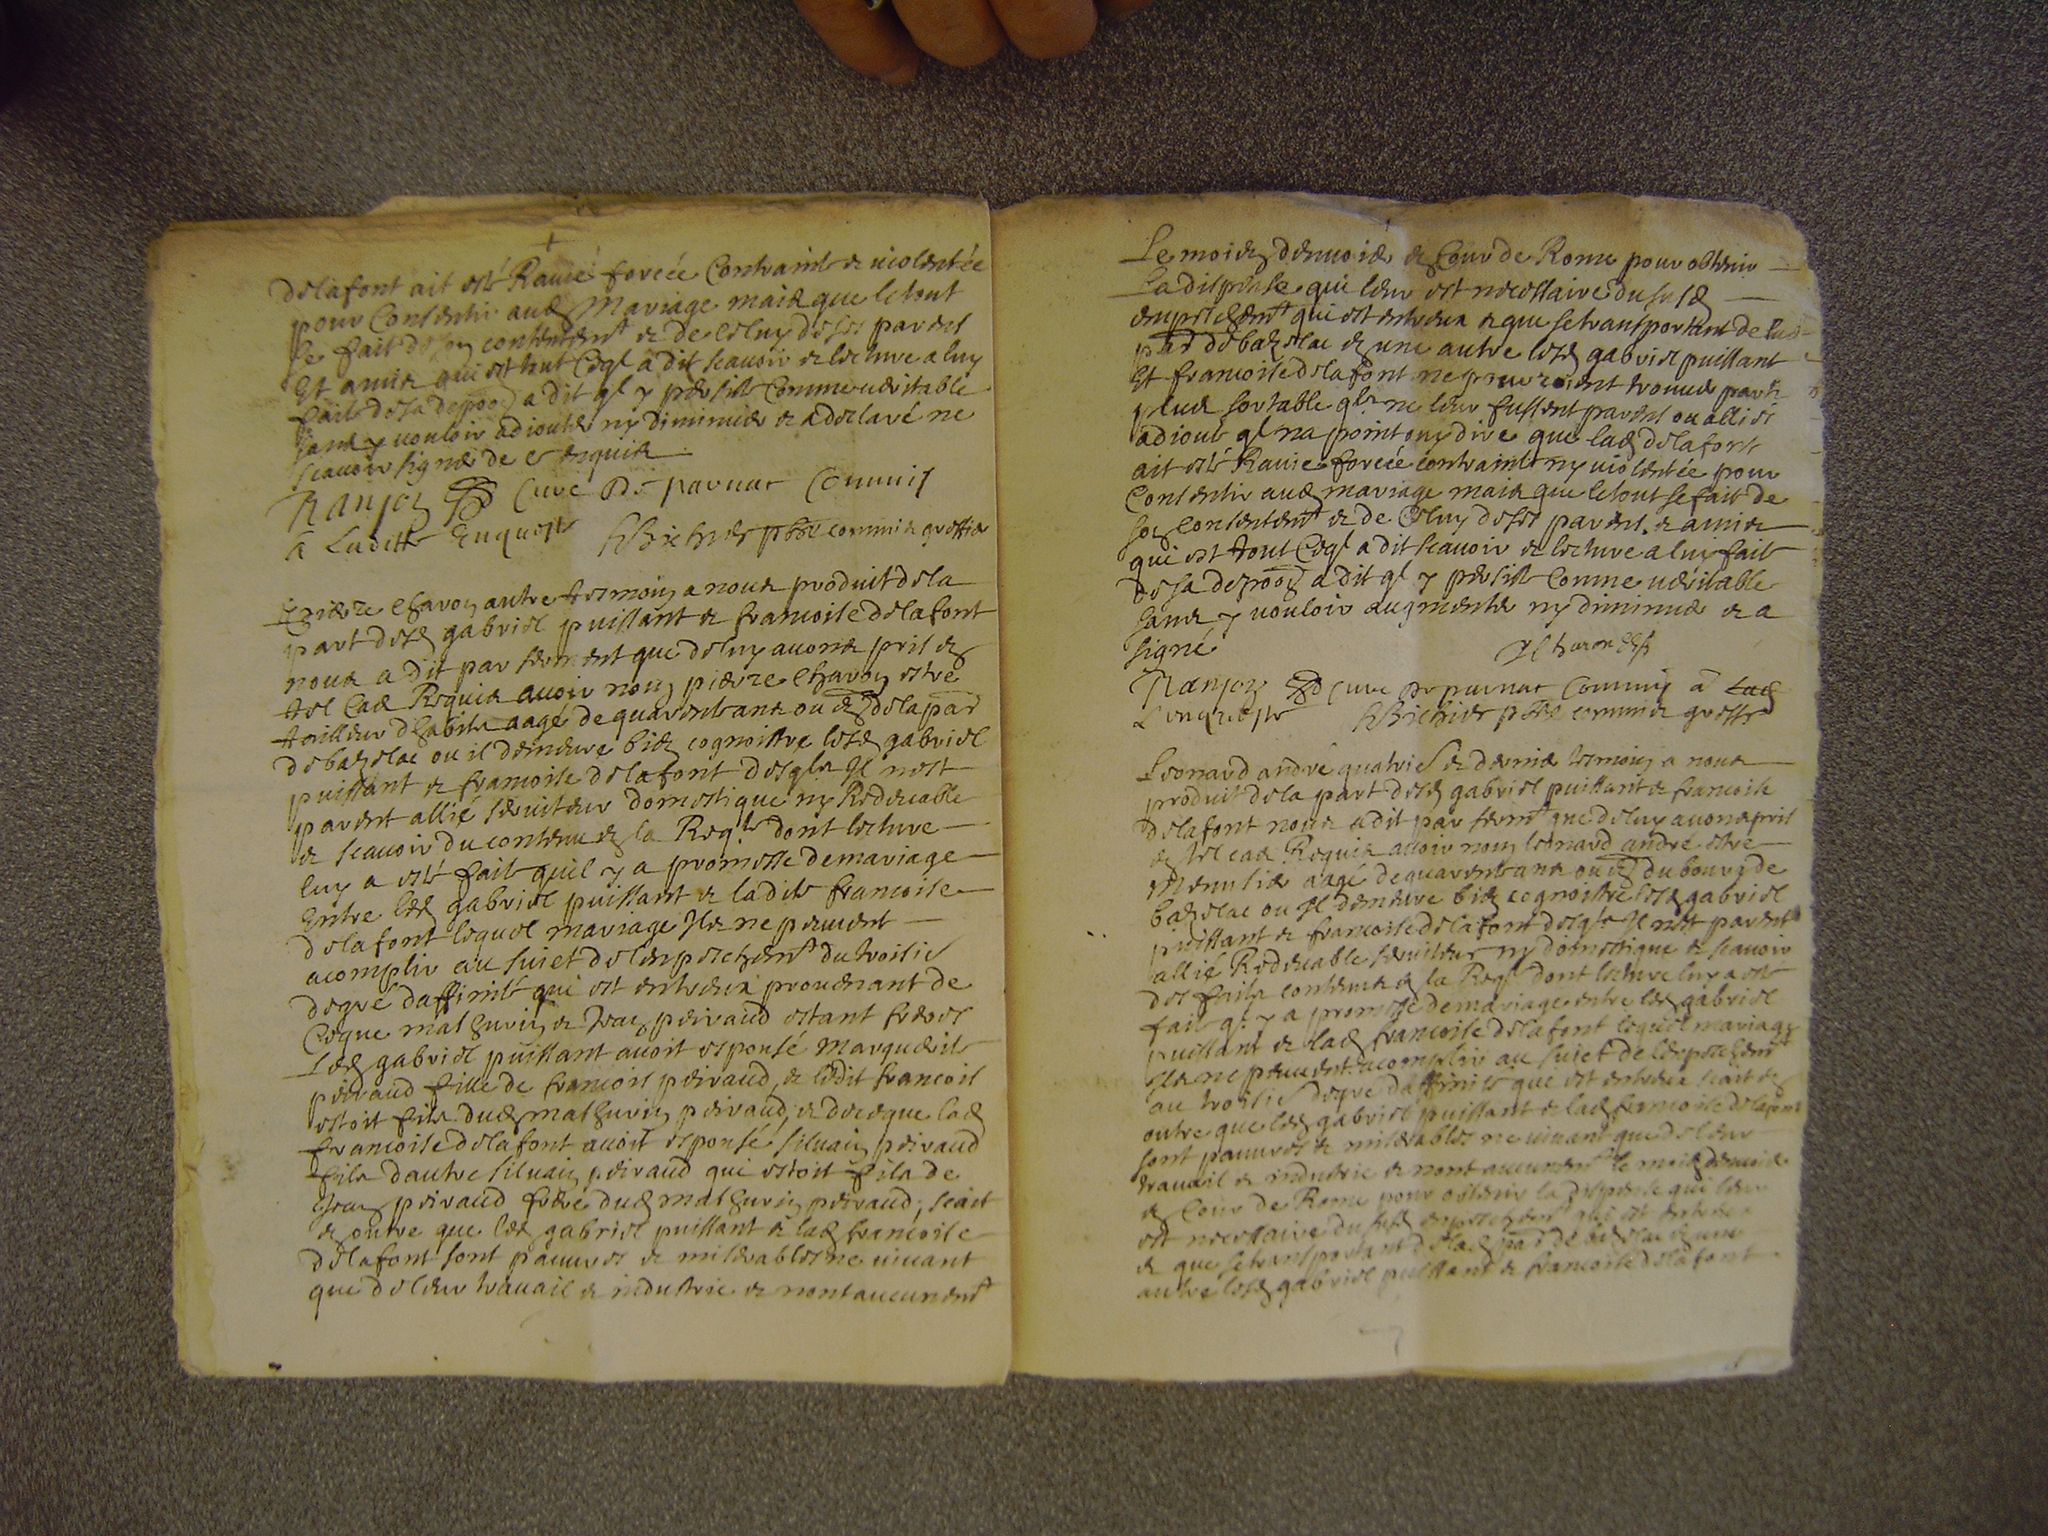 delafont ait esté Ravie forcée Contrainte et violentée
pour Consentir aud Mariage mais que le tout
se fait de son contentemt et de celuy de ses parens
Et amis qui est tout Ceql a dit scavoir et lecture a luy
faite de sa depoon a dit ql y persiste Comme veritable
sans y vouloir adiouter ny diminuer et a declaré ne
scavoir signer de ce enquis
Ranjon Curé De parnac Commis
a Laditte Enqueste HBichier pbre commis greffier
Pierre Charon autre tesmoin a nous produit de la
part desd gabriel puissant et francoise delafont
nous a dit par serment que de luy avons pris en
tel Cas Requis avoir nom pierre Charon estre
tailleur dhabits aagé de quarente ans ou en de la par
de bazelac ou il demeure bien cognoistre lesd gabriel
puissant et francoise delafont desqls Il nest
parent allié serviteur domestique ny Redevable
et scavoir du contenu en la Reqte dont lecture
luy a esté faite quil y a promesse de mariage
Entre led gabriel puissant et ladite francoise
delafont lequel mariage Ils ne peuvent
acomplir au suiet de lenpeschemt du troisie
degré daffinité qui est entreux provenant de
Ceque mathurin et Jean peiraud estant freres
Led gabriel puissant avoit espousé Marguerite
peiraud fille de francois peiraud, et ledit francois
estoit fils dud mathurin peiraud, et de ceque lad
francoise delafont avoit espousé silvain peiraud
fils dautre silvain peiraud qui estoit fils de
Jean peiraud frere dud mathurin peiraud, scait
en outre que led gabriel puissant et lad francoise
delafont sont pauvres et miserables ne vivant
que de leur travail et industrie et nont aucunemt
Le moien denvoier en Cour de Rome pour obtenir
La dispense qui leur est necessaire du susd
enpeschemt qui est entreux et que se transportant de lad
par de bazelac en une autre lesd gabriel puissant
Et francoise delafont ne trouver partis
plus sortable qls ne leur fussent parens ou alliés
adioute ql na point ouy dire que lad delafont
ait esté Ravie forcée contrainte ny violentée pour
Consentir aud mariage mais que le tout se fait de
son consentemt et de Celuy de ses parens et amis
qui est tout Ceql a dit scavoir et lecture a luy faite
de sa depoon a dit ql y persiste Comme veritable
sans y vouloir augmenter ny diminuer et a
signé
Ranjon Curé De parnac Commis a Lad
Lenqueste HBichier pbre commis greffier
Leonard andré quatrie et dernier tesmoin a nous
produit de la part desd gabriel puissant et francoise
delafont nous a dit par sermt que de luy avons pris
en tel cas Requis avoir nom leonard andré estre
Menusier aagé de quarente ans ou en du bourg de
bazelac ou Il demeure bien cognoistre lesd gabriel
puissant et francoise delafont desqls Il nest parent
allié Redevable serviteur ny domestique et scavoir
des faits contenus en la Reqte dont lecture luy a esté
faite ql y a promesse de mariage entre led gabriel
puissant et lad francoise delafont lequel mariage
Ils ne peuvent acomplir au suiet de lenpeschemt
au troisie degré daffinité que est entreux scait en
outre que led gabriel puissant et lad francoise delafont
sont pauvres et miserables ne vivant que de leur
travail et industrie et nont aucunemt le moien denvoier
en Cour de Rome pour obtenir la dispense qui leur
est necessaire du susd enpeschemt qui est entreux
et que se transportant de lad par de bazelac en une
autre lesd gabriel puissant et francoise delafont